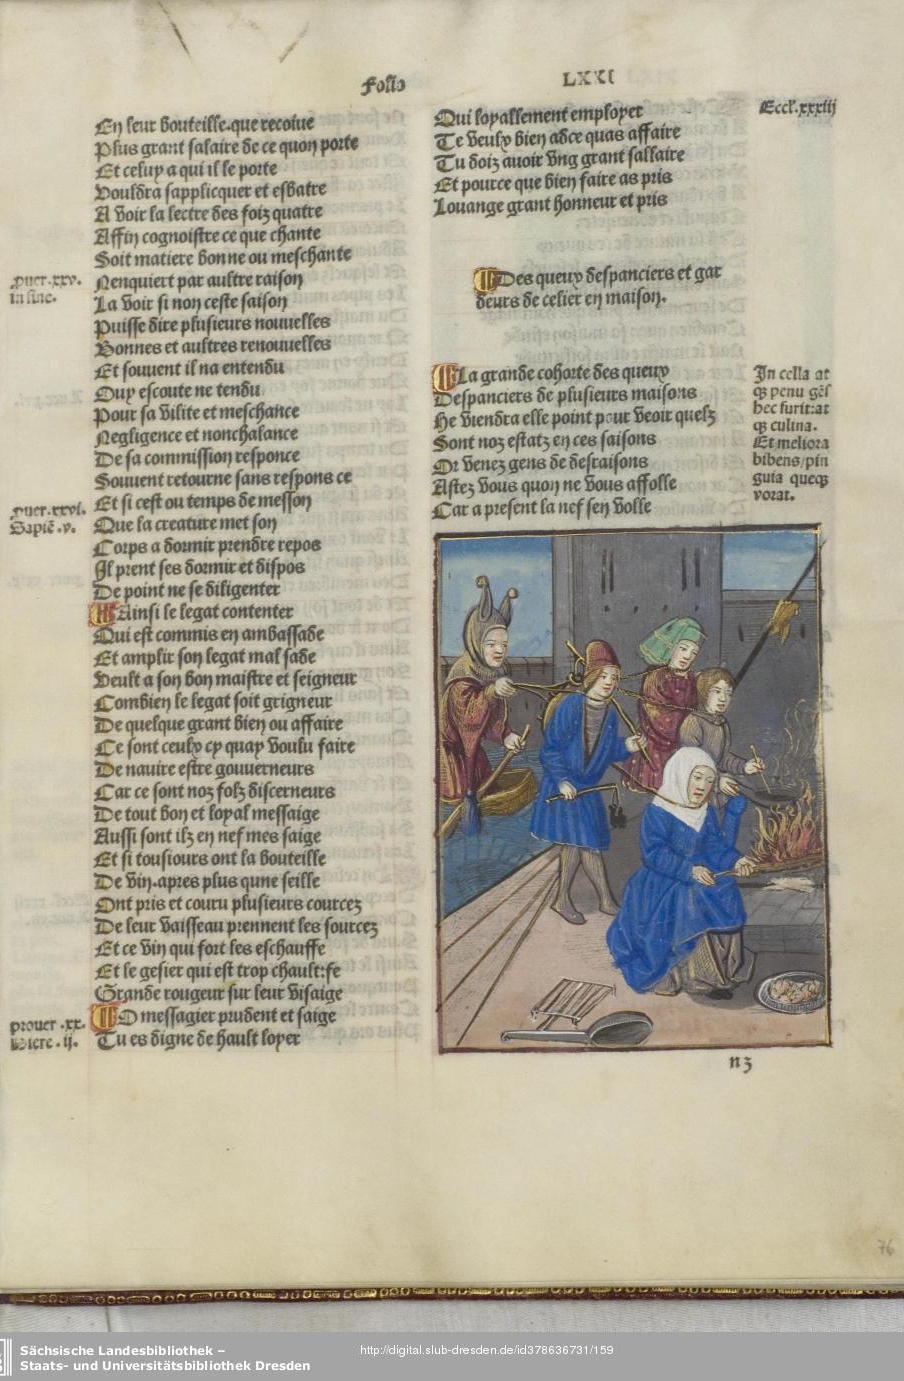 Folio LXXI
En leur bouteille.que recoiue
Plus grant salaire de ce quon porte
Et celuy a qui il le porte
Vouldra sapplicquer et esbatre
A voir la lectre des foiz quatre
Affin cognoistre ce que chante
Soit matiere bonne ou meschante
Nenquiert par aultre raison
La voir si non ceste saison
Puisse dire plusieurs nouuelles
Bonnes et aultres renouuelles
Et souuent il na entendu
Ouy escoute ne tendu
Pour sa vilite et meschance
Negligence et nonchalance
De sa commission responce
Souuent retourne sans respons ce
Et si cest ou temps de messon
Que la creature met son
Corps a dormir prendre repos
Il prent ses dormir et dispos
De point ne se diligenter
Ainsi le legat contenter
Qui est commis en ambassade
Et amplir son legat mal sade
Veult a son bon maistre et seigneur
Combien le legat soit grigneur
De quelque grant bien ou affaire
Ce sont ceulx cy quay voulu faire
De nauire estre gouuerneurs
Car ce sont noz folz discerneurs
De tout bon et loyal messaige
Aussi sont ilz en nef mes saige
Et si tousiours ont la bouteille
De vin.apres plus qune seille
Ont pris et couru plusieurs courcez
De leur vaisseau prennent les sourcez
Et ce vin qui fort les eschauffe
Et le gesier qui est trop chault:fe
Grande rougeur sur leur visaige
O messagier prudent et saige
Tu es digne de hault loyer
puer.xxv.
in fine.
puer.xxvi.
Sapiē.v.
prouer.xx.
Hiere.ij.
Qui loyallement employer
Te veulx bien adce quas affaire
Tu doiz auoir vng grant sallaire
Et pource que bien faire as pris
Louange grant honneur et pris
Eccl'.xxxiij
Des queux despanciers et gar
deurs de celier en maison.
La grande cohorte des queux
Despanciers de plusieurs maisons
He viendra elle point pour veoir quelz
Sont noz estatz en ces saisons
Or venez gens de desraisons
Astez vous quon ne vous affolle
Car a present la nef sen volle
In cella at
qȝ penu gēs
hec furit:at
qȝ culina.
Et meliora
bibens/pin
guia quecqȝ
vorat.
n3
76
Sächsische Landesbibliothek –
Staats- und Universitätsbibliothek Dresden
http://digital.slub-dresden.de/id378636731/159